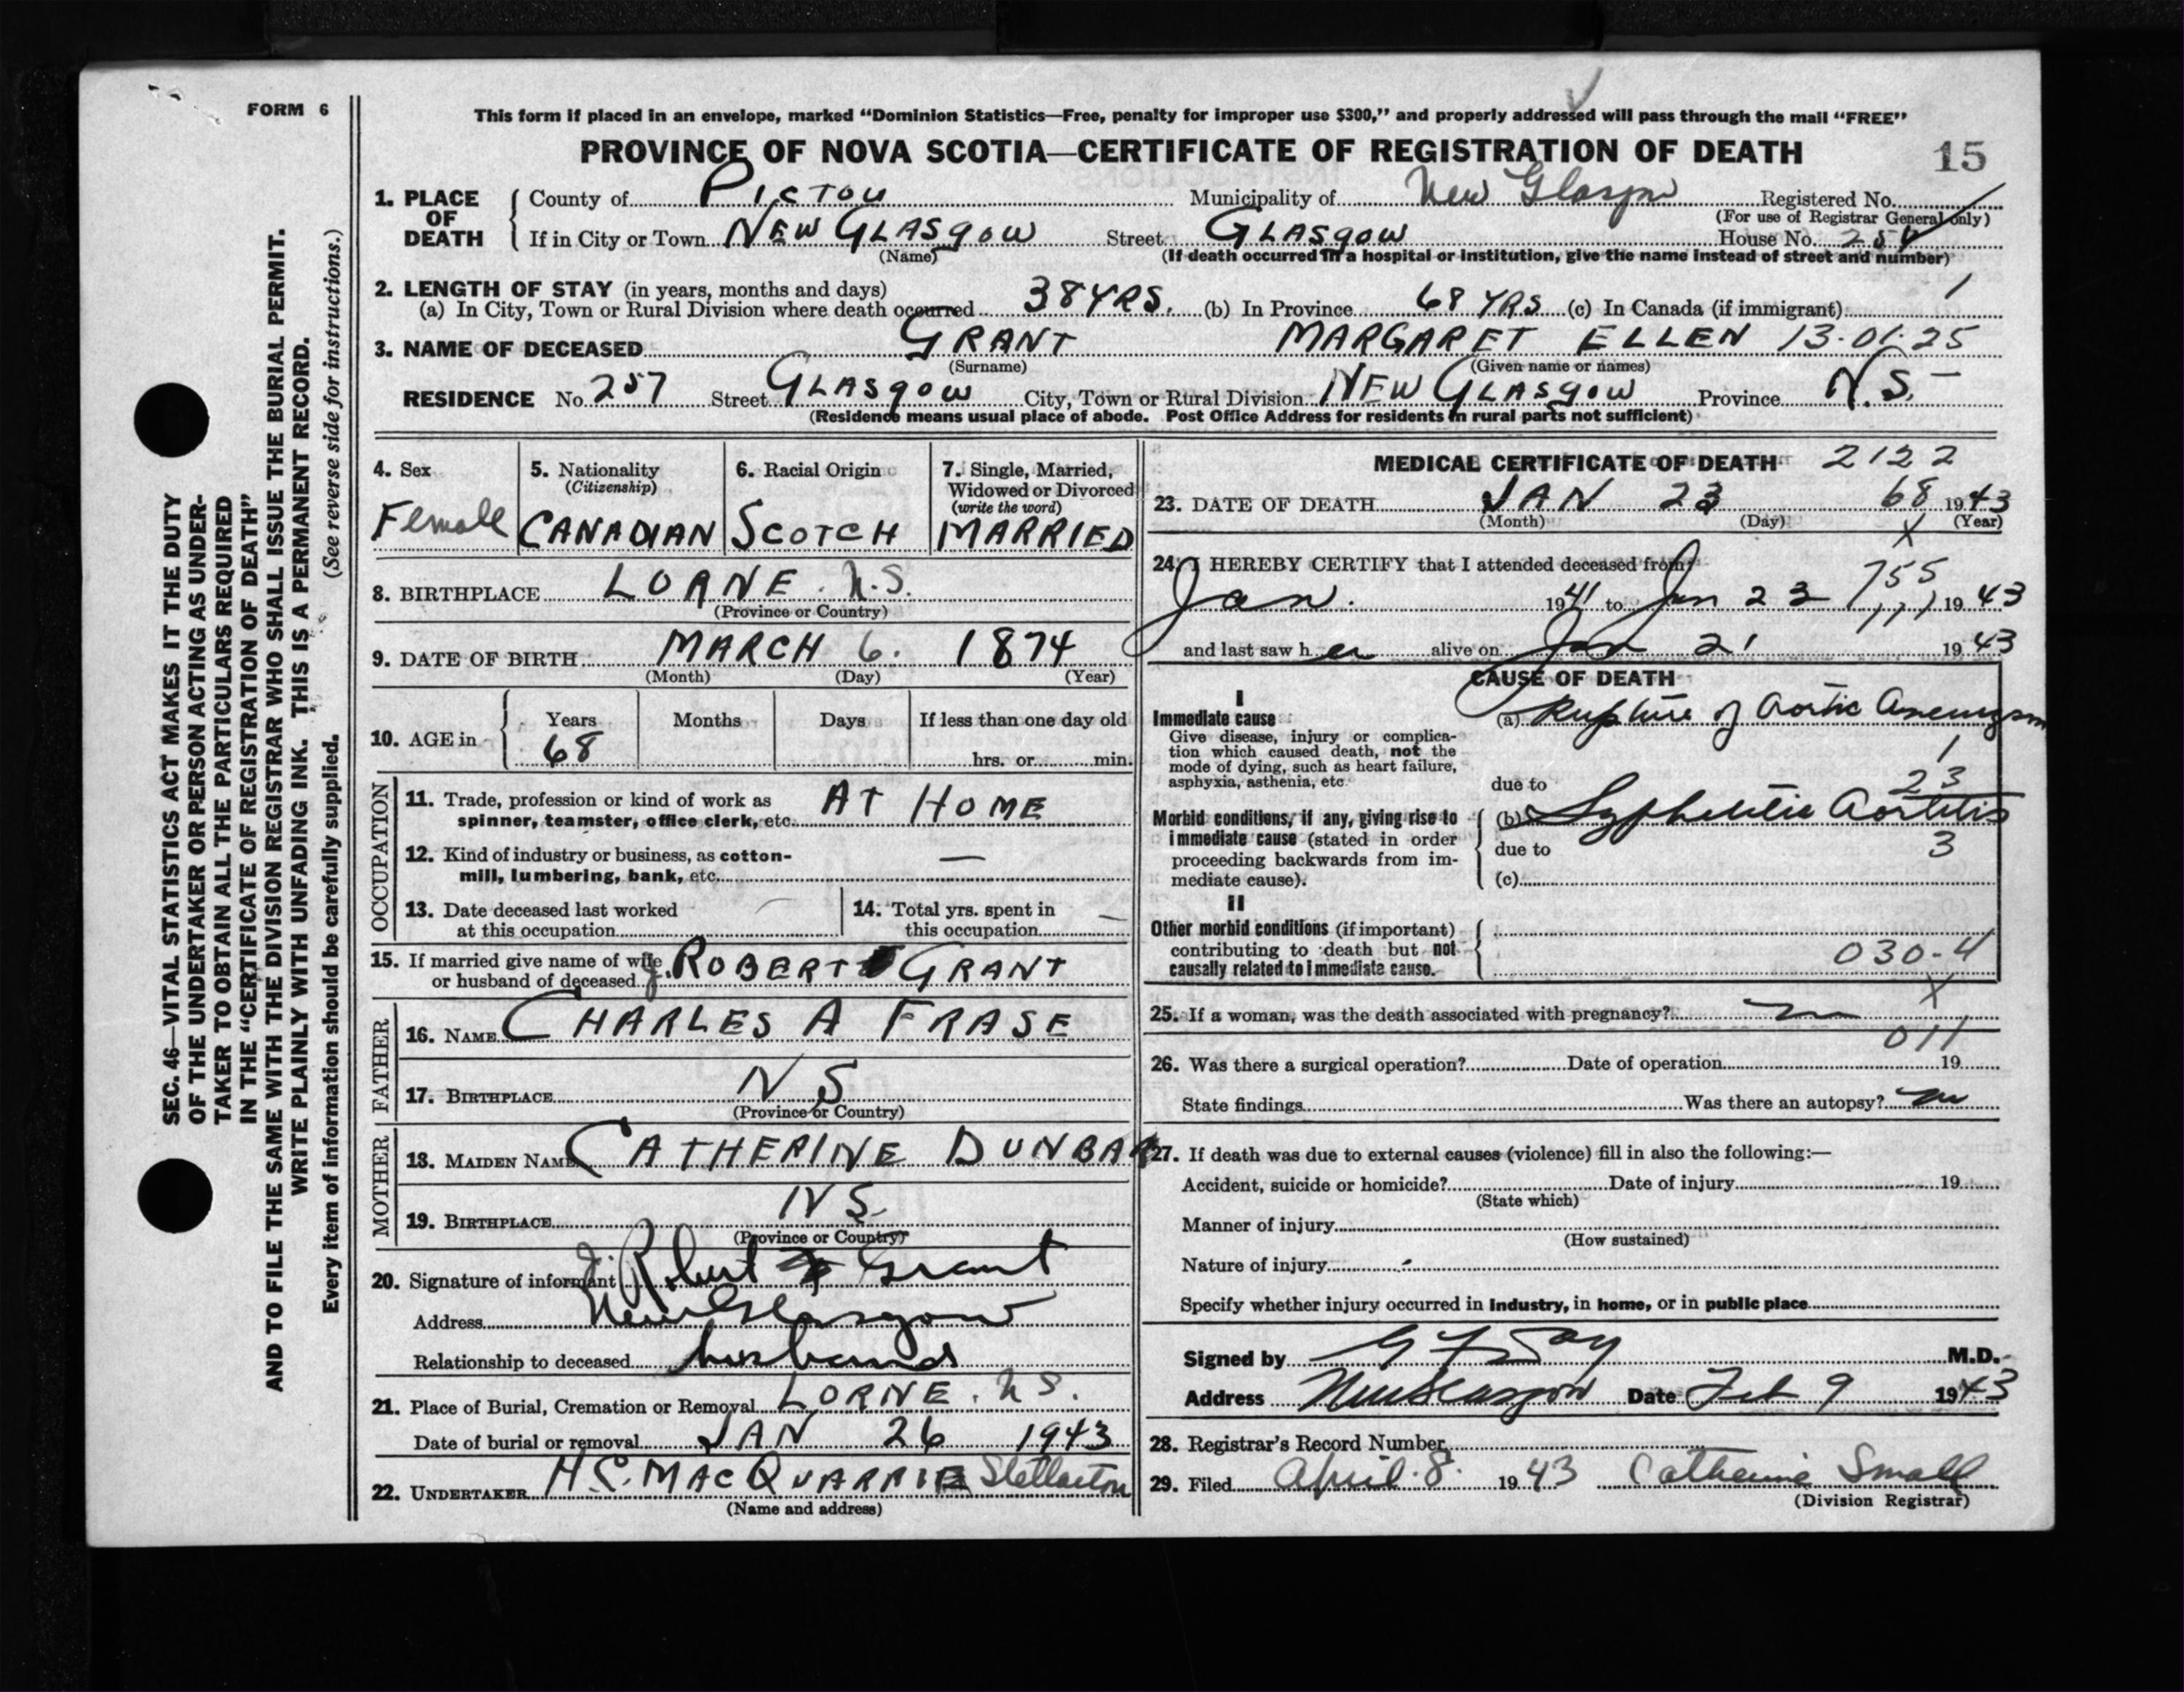 FORM 6
This form if placed in an envelope, marked “Dominion Statistics—Free, penalty for improper use $300,” and properly addressed will pass through the mail “FREE”
PROVINCE OF NOVA SCOTIA—CERTIFICATE OF REGISTRATION OF DEATH
15
SEC. 46—VITAL STATISTICS ACT MAKES IT THE DUTY
OF THE UNDERTAKER OR PERSON ACTING AS UNDER-
TAKER TO OBTAIN ALL THE PARTICULARS REQUIRED
IN THE “CERTIFICATE OF REGISTRATION OF DEATH”
AND TO FILE THE SAME WITH THE DIVISION REGISTRAR WHO SHALL ISSUE THE BURIAL PERMIT.
WRITE PLAINLY WITH UNFADING INK. THIS IS A PERMANENT RECORD.
Every item of information should be carefully supplied. (See reverse side for instructions.)
1. PLACE OF DEATH
County of PICTOU Municipality of New Glasgow Registered No.
(For use of Registrar General only)
If in City or Town NEW GLASGOW Street GLASGOW House No.
(Name) (If death occurred in a hospital or institution, give the name instead of street and number)
2. LENGTH OF STAY (in years, months and days) 1
(a) In City, Town or Rural Division where death occurred 38 YRS. (b) In Province 68 YRS (c) In Canada (if immigrant)
3. NAME OF DECEASED GRANT MARGARET ELLEN 13-01-25
(Surname) (Given name or names)
RESIDENCE No. 257 Street GLASGOW City, Town or Rural Division NEW GLASGOW Province N.S.
(Residence means usual place of abode. Post Office Address for residents in rural parts not sufficient)
4. Sex
Female
5. Nationality
(Citizenship)
CANADIAN
6. Racial Origin
SCOTCH
7. Single, Married,
Widowed or Divorced
(write the word)
MARRIED
8. BIRTHPLACE LORNE. N.S.
(Province or Country)
9. DATE OF BIRTH MARCH 6. 1874
(Month) (Day) (Year)
10. AGE in
Years Months Days If less than one day old
68 hrs. or min.
OCCUPATION
11. Trade, profession or kind of work as
spinner, teamster, office clerk, etc. AT HOME
12. Kind of industry or business, as cotton-
mill, lumbering, bank, etc. —
13. Date deceased last worked
at this occupation —
14. Total yrs. spent in
this occupation —
15. If married give name of wife
or husband of deceased J. ROBERT GRANT
FATHER
16. NAME CHARLES A FRASE
17. BIRTHPLACE N S
(Province or Country)
MOTHER
18. MAIDEN NAME CATHERINE DUNBAR
19. BIRTHPLACE NS.
(Province or Country)
20. Signature of informant J. Robert Grant
Address New Glasgow
Relationship to deceased husband
21. Place of Burial, Cremation or Removal LORNE. N S.
Date of burial or removal JAN 26 1943
22. UNDERTAKER H.C. MACQUARRIE Stellarton
(Name and address)
MEDICAL CERTIFICATE OF DEATH 2122
23. DATE OF DEATH JAN 23 68 1943
(Month) (Day) (Year)
X
24. I HEREBY CERTIFY that I attended deceased from
755
Jan. 1941 to Jan 23 1943
and last saw her alive on Jan 21 1943
CAUSE OF DEATH
I
Immediate cause
Give disease, injury or complica-
tion which caused death, not the
mode of dying, such as heart failure,
asphyxia, asthenia, etc.
(a) Rupture of Aortic Aneurysm
1
due to 23
Morbid conditions, if any, giving rise to
immediate cause (stated in order
proceeding backwards from im-
mediate cause).
(b) Syphilitic Aortitis
due to 3
(c)
II
Other morbid conditions (if important)
contributing to death but not
causally related to immediate cause.
030-4
X
25. If a woman, was the death associated with pregnancy? no
011
26. Was there a surgical operation? Date of operation 19
State findings Was there an autopsy? no
27. If death was due to external causes (violence) fill in also the following:—
Accident, suicide or homicide? Date of injury 19
(State which)
Manner of injury
(How sustained)
Nature of injury
Specify whether injury occurred in industry, in home, or in public place
Signed by M.D.
Address New Glasgow Date Feb 9 1943
28. Registrar's Record Number
29. Filed April 8. 1943 Catherine Small
(Division Registrar)